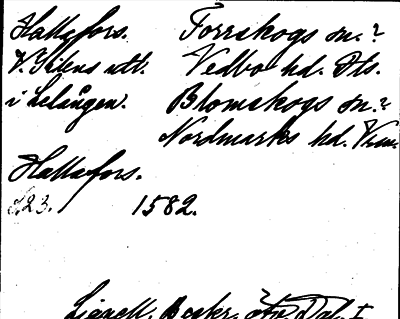 Hallafors. Torrskogs sn.?
V. Silens utl. Vedbo hd. Dls.
i Lelången. Blomskogs sn.?
Nordmarks hd. Vrm.
Hallafors.
s. 23. 1582.
Lignell, Beskr. öfv. Dal. I